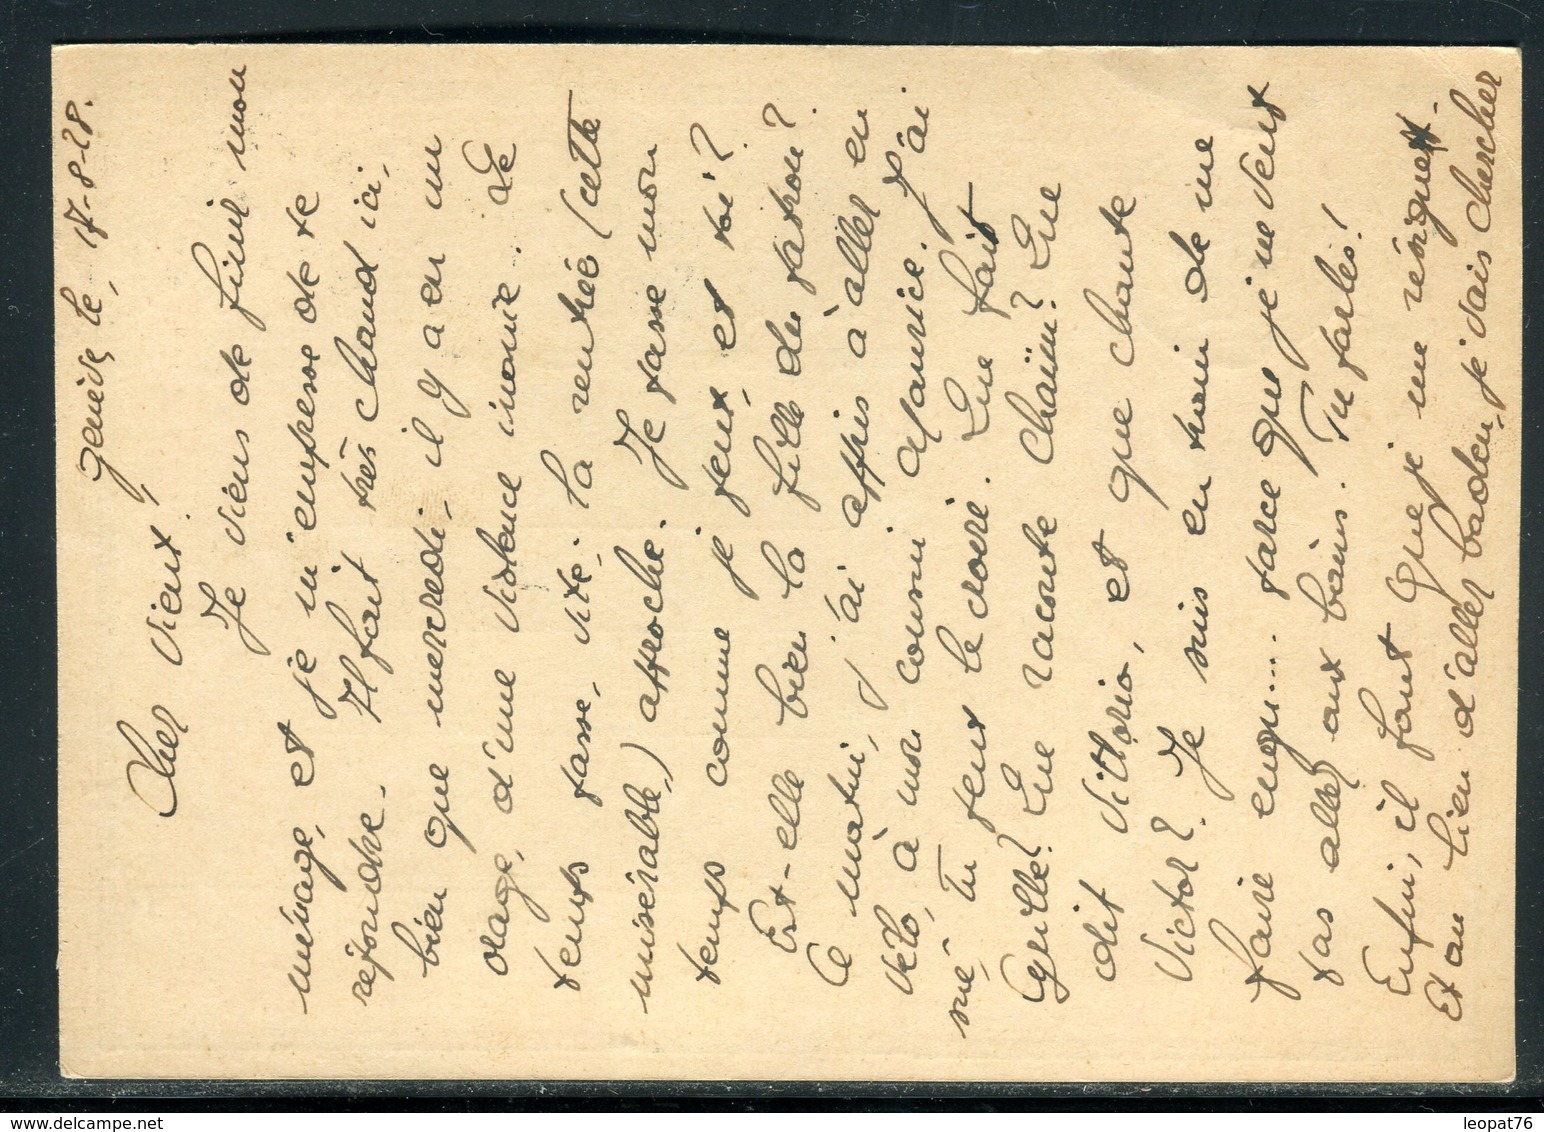 Genève le, 17-8-28.
Cher vieux!
Je viens de finir mon
ménage, et je m'empresse de te
répondre. Il fait très chaud ici,
bien que mercredi, il y a eu un
orage, d'une violence inouïe. Le
temps passe, vite, la rentrée (cette
misérable,) approche. Je passe mon
temps comme je peux, et toi?
Est-elle bien la fille du patron?
Ce matin, j'ai appris à aller en
vélo, à mon cousin Maurice. J'ai
sué, Tu peux le croire. Que fait
Cyrille? Que raconte Chaïm? Que
dit Vittorio, et que chante
Victor? Je suis en train de me
faire engu.... parce que je ne veux
pas aller aux bains. Tu parles!
Enfin, il faut que je me résigne.
Et au lieu d'aller bader, je vais chercher
www.delcampe.net
leopat76